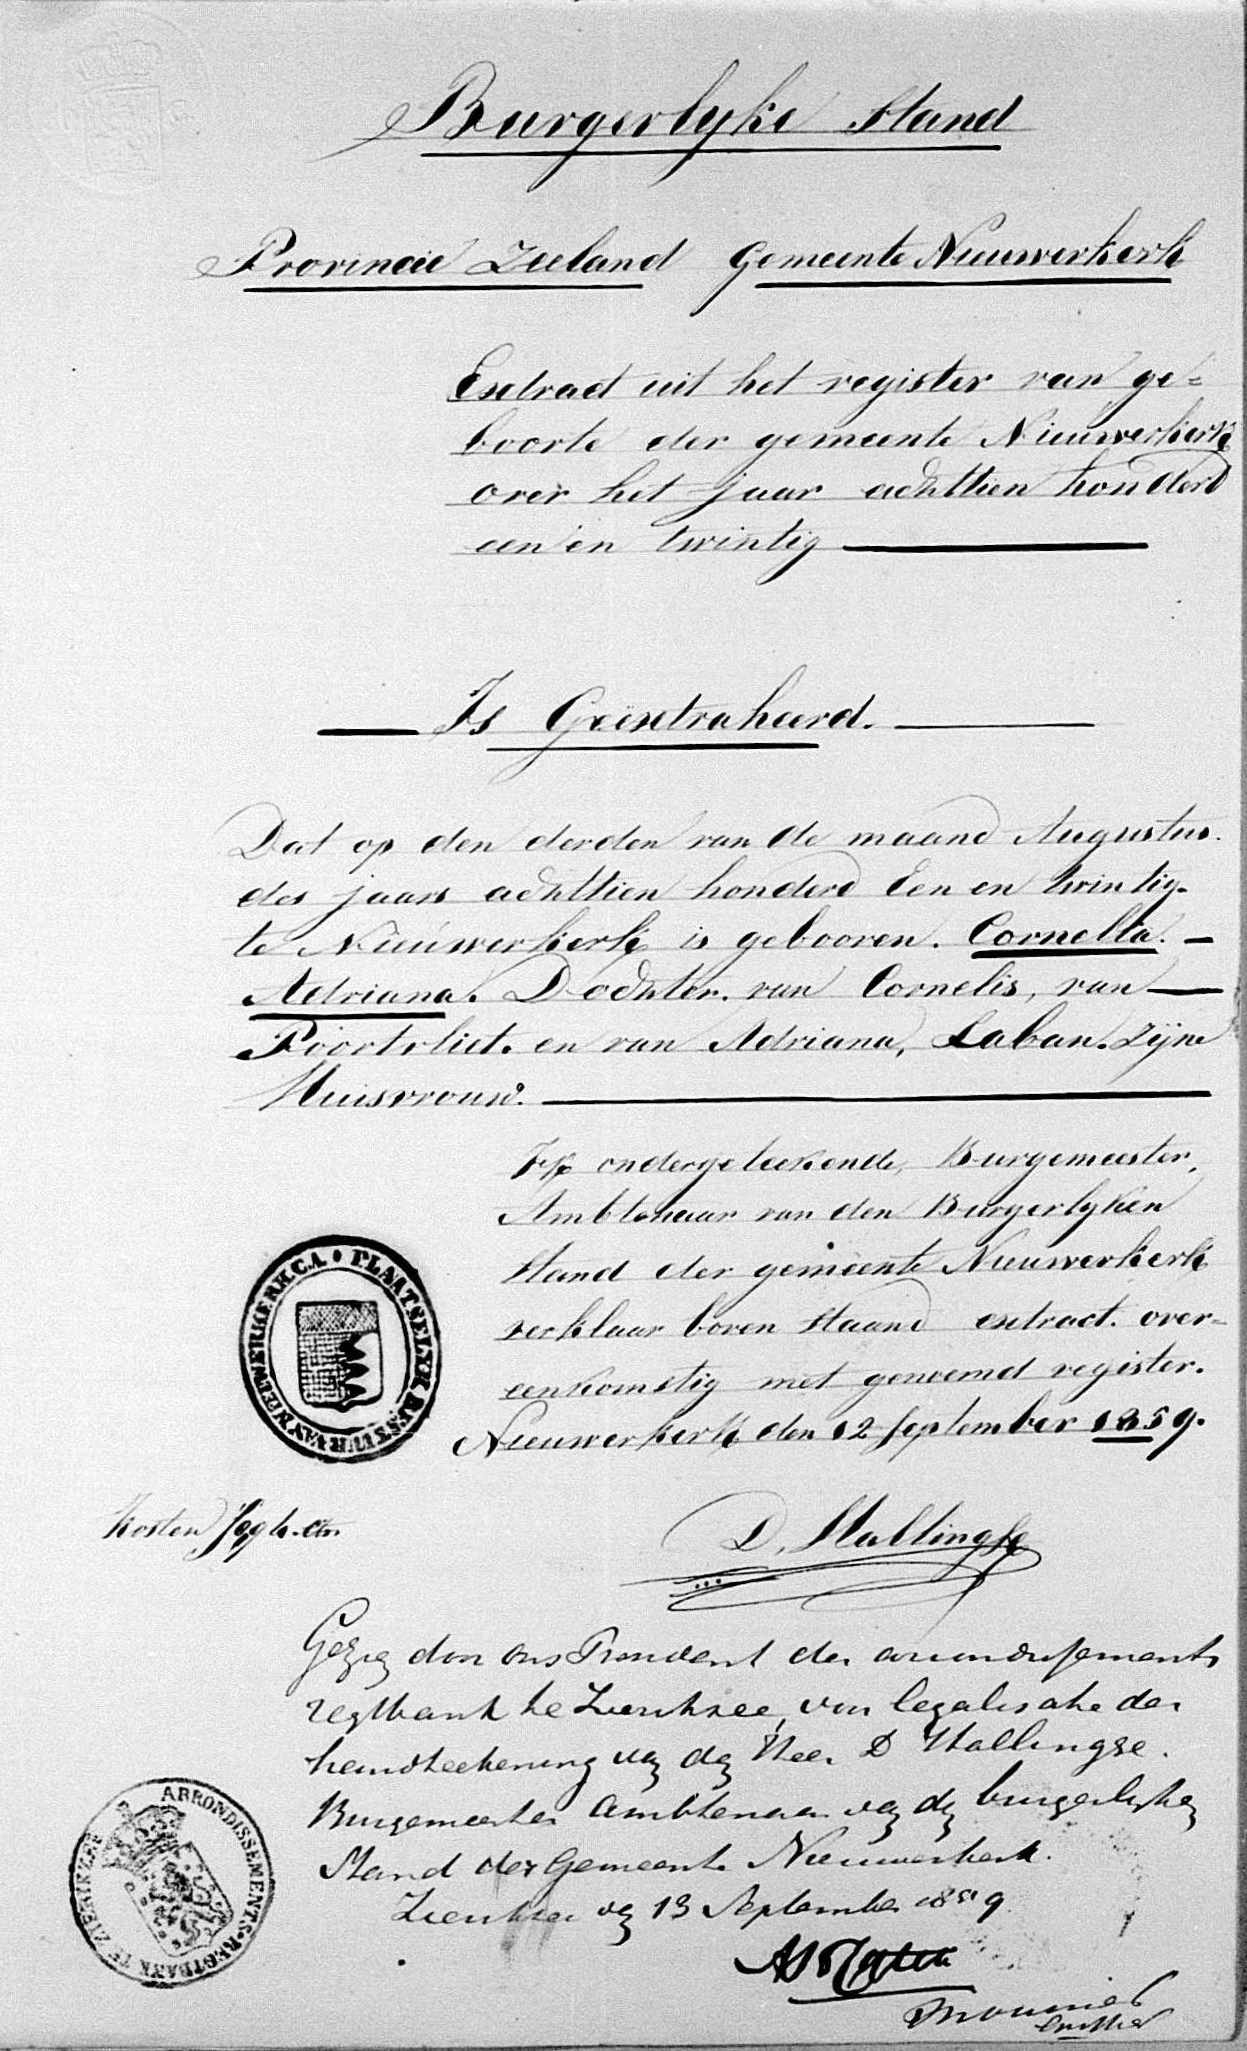 Burgerlyke Stand
Provincie Zeeland Gemeente Nieuwerkerk
Extract uit het register van ge=
boorte der gemeente Nieuwerkerk
over het jaar achttien honderd
een en twintig
Is Geëxtraheerd.
Dat op den derden van de maand Augustus.
des jaars achttien honderd Een en twintig.
te Nieuwerkerk is gebooren. Cornelia.
Adriana. Dochter. van Cornelis, van
Poortvliet. en van Adriana, Laban. Zijne
Huisvrouw.
Ik ondergeteekende, Burgemeester,
Ambtenaar van den Burgerlyken
Stand der gemeente Nieuwerkerk
verklaar boven staand extract. over=
eenkomstig met genoemd register.
Nieuwerkerk den 12 September 1859.
PLAATSELYK BESTUUR VAN NIEUWERKERK C.A.
Kosten
D. Hallingse
Gezien door ons President der arrondissements
regtbank te Zierikzee, voor legalisatie der
handteekening van den Heer D Hallingse.
Burgemeester Ambtenaar van den burgerlyken
Stand der Gemeente Nieuwerkerk.
Zierikzee den 13 September 1859
ARRONDISSEMENTS-REGTBANK TE ZIERIKZEE
griffier